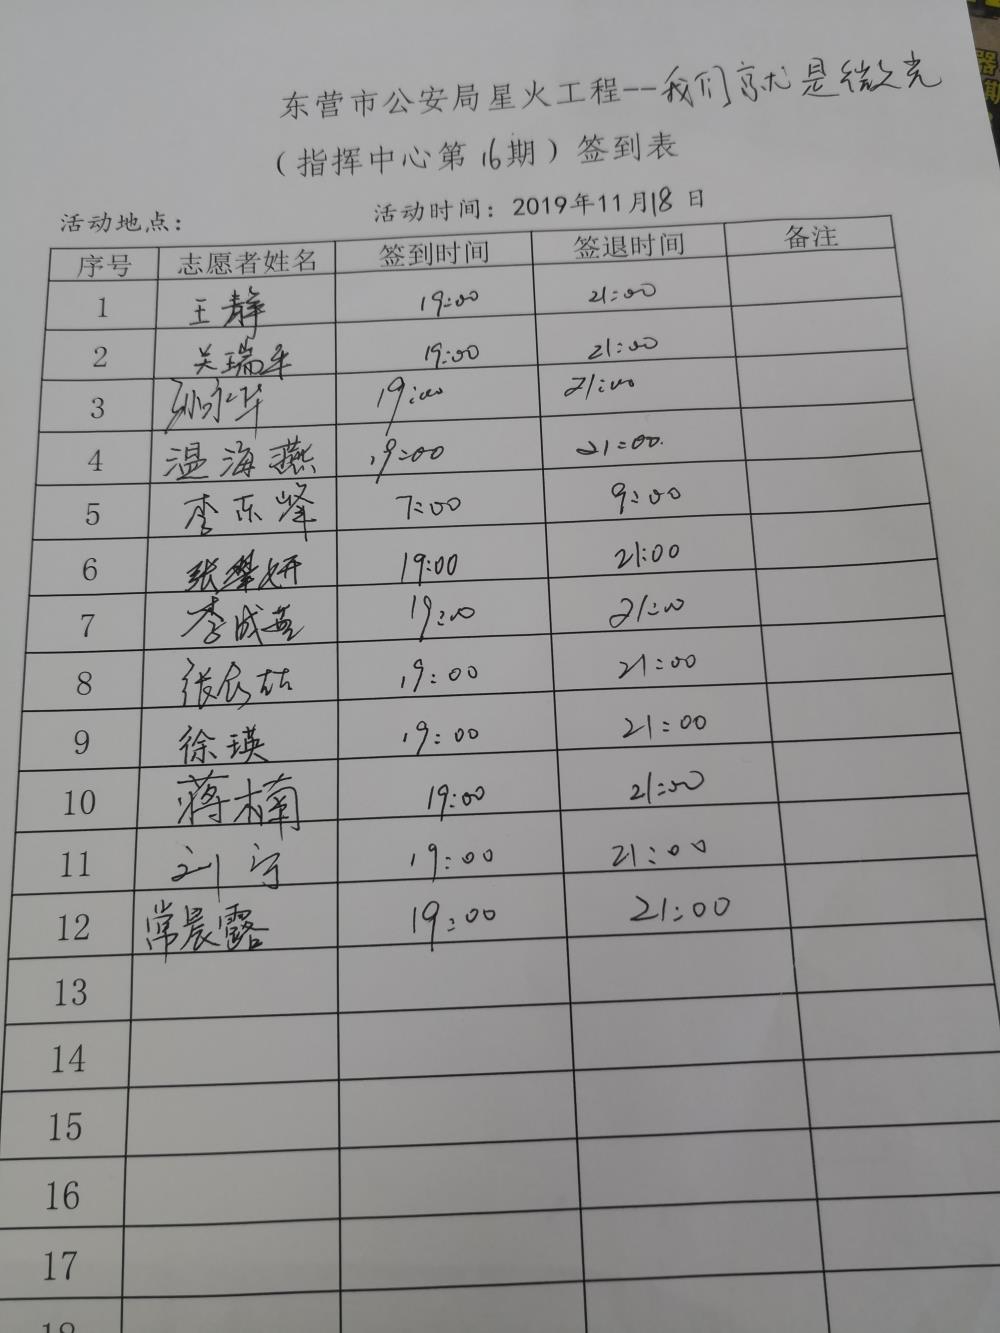 东营市公安局星火工程--我们就是微光
（指挥中心第16期）签到表
活动地点： 活动时间：2019年11月18日
序号 志愿者姓名 签到时间 签退时间 备注
1 王静 19:00 21:00
2 吴瑞平 19:00 21:00
3 孙永华 19:00 21:00
4 温海燕 19:00 21:00.
5 李东峰 7:00 9:00
6 张攀妍 19:00 21:00
7 李成燕 19:00 21:00
8 张 19:00 21:00
9 徐瑛 19:00 21:00
10 蒋楠 19:00 21:00
11 刘宁 19:00 21:00
12 常晨露 19:00 21:00
13
14
15
16
17
18